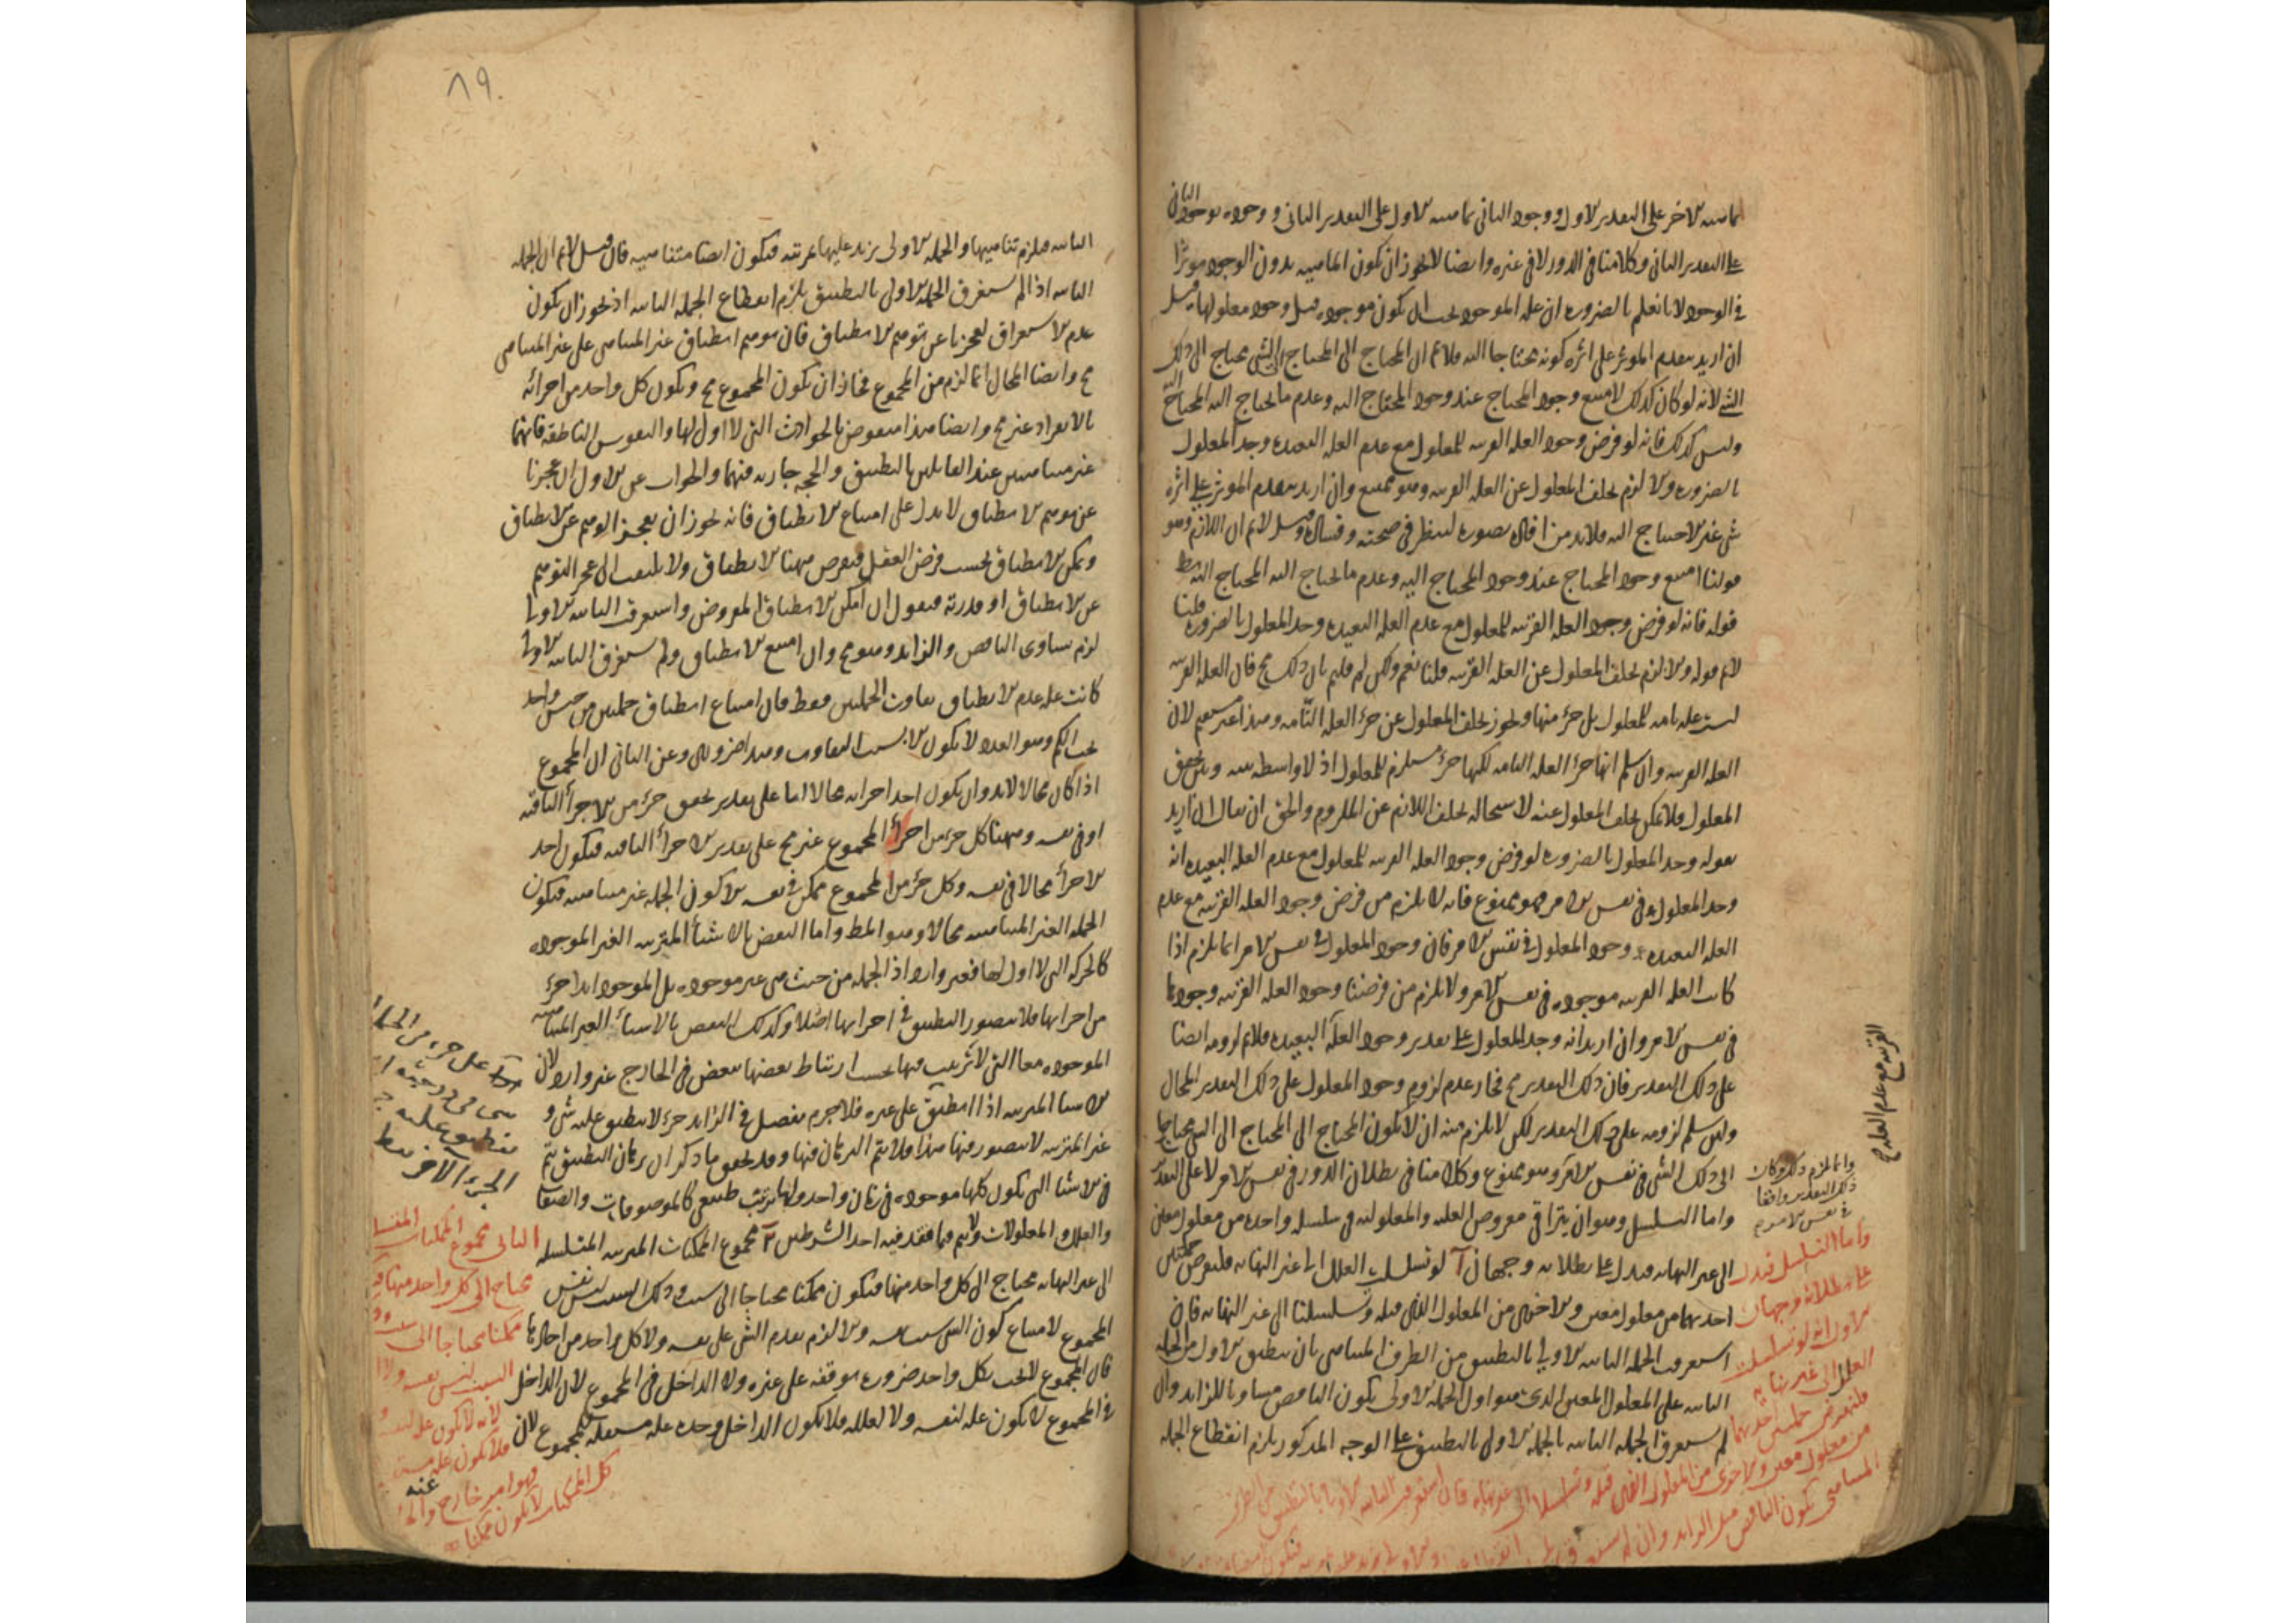 بماهية الآخر على التقدير الأول ووجود الثاني بماهية الأول على التقدير الثاني ووجوده بوجود الثاني
على التقدير الثاني وكلامنا في الدور لا في غيره وايضا لا يجوز ان يكون الماهية بدون الوجود موثرا
في الوجود لانا نعلم بالضرورة ان علة الموجود يجب ان يكون موجودة قبل وجود معلولها قيل
ان اريد بتقدم الموثر على اثره كونه محتاجا اليه فلانم ان المحتاج الى المحتاج الى الشي محتاج الى ذلك
الشي لانه لو كان كذلك لامتنع وجود المحتاج عند وجود المحتاج اليه وعدم ما يحتاج اليه المحتاج اليه
وليس كذلك فانه لو فرض وجود العلة القريبة للمعلول مع عدم العلة البعيدة وجد المعلول
بالضرورة والا لزم تخلف المعلول عن العلة القريبة وهو ممتنع وان اريد بتقدم الموثر على اثره
شي غير الاحتياج اليه فلابد من افادة تصوره لينظر في صحته وفساده وقيل لانم ان اللازم وهو
قولنا امتنع وجود المحتاج عند وجود المحتاج اليه وعدم ما يحتاج اليه المحتاج اليه بط
قوله فانه لو فرض وجود العلة القريبة للمعلول مع عدم العلة البعيدة وجد المعلول بالضرورة قلنا
لانم قوله والا لزم تخلف المعلول عن العلة القريبة قلنا نعم ولكن لم قلتم بان ذلك مح فان العلة القريبة
ليست علة تامة للمعلول بل جزء منها ويجوز تخلف المعلول عن جزء العلة التامة وهذا غير مستقيم لان
العلة القريبة وان سلم انها جزء العلة التامة لكنها جزء مستلزم للمعلول اذ لا واسطة بينه وبين تحقق
المعلول فلا يمكن تخلف المعلول عنه لاستحالة تخلف اللازم عن الملزوم والحق ان يقال ان اريد
بقوله وجد المعلول بالضرورة لو فرض وجود العلة القريبة للمعلول مع عدم العلة البعيدة انه
وجد المعلول في نفس الامر فهو ممنوع فانه لا يلزم من فرض وجود العلة القريبة مع عدم
العلة البعيدة وجود المعلول في نفس الامر فان وجود المعلول في نفس الامر انما يلزم اذا
كانت العلة القريبة موجودة في نفس الامر ولا يلزم من فرضنا وجود العلة القريبة وجودها
في نفس الامر وان اريد انه وجد المعلول على تقدير وجود العلة البعيدة فلانم لزومه ايضا
على ذلك التقدير فان ذلك التقدير مح فجاز عدم لزوم وجود المعلول على ذلك التقدير المحال
ولئن سلم لزومه على ذلك التقدير لكن لا يلزم منه ان لا يكون المحتاج الى المحتاج الى الشي محتاجا
الى ذلك الشي في نفس الامر وهو ممنوع وكلامنا في بطلان الدور في نفس الامر لا على التقدير
واما التسلسل وهو ان يتراقى معروض العلية والمعلولية في سلسلة واحدة من معلول معين
الى غير النهاية فيدل على بطلانه وجهان آ لو تسلسلت العلل الى غير النهاية فلنفرض جملتين
احديهما من معلول معين والاخرى من المعلول الذي قبله وتسلسلتا الى غير النهاية فان
استغرقت الجملة الثانية الاولى بالتطبيق من الطرف المتناهي بان يطبق الاول من الجملة
الثانية على المعلول المعين الذي هو اول الجملة الاولى يكون الناقص مساويا للزايد وان
لم يستغرق الجملة الثانية بالجملة الاولى بالتطبيق على الوجه المذكور يلزم انقطاع الجملة
القريبة مع عدم العلة ح
وانما لزم ذلك لو كان
ذلك التقدير واقعا
في نفس الامر م
واما التسلسل فيدل
على بطلانه وجهان
الاول انه لو تسلسلت
العلل الى غير نهاية
فلنفرض جملتين احديهما
من معلول معين والاخرى من المعلول الذي قبله وتسلسلا الى غير نهاية فان استغرقت الثانية الاولى بالتطبيق من الطرف
المتناهي يكون الناقص مثل الزايد وان لم يستغرق
٨٩
الثانية فيلزم تناهيها والجملة الاولى يزيد عليها بمرتبة فيكون ايضا متناهية فان قيل لانم ان الجملة
الثانية اذا لم يستغرق الجملة الاولى بالتطبيق يلزم انقطاع الجملة الثانية اذ يجوز ان يكون
عدم الاستغراق لعجزنا عن توهم الانطباق فان توهم انطباق غير المتناهي على غير المتناهي
مح وايضا المحال انما لزم من المجموع فجاز ان يكون المجموع مح ويكون كل واحد من اجزائه
بالانفراد غير مح وايضا هذا منقوض بالحوادث التي لا اول لها والنفوس الناطقة فانهما
غير متناهيين عند القايلين بالتطبيق والحجة جارية فيهما والجواب عن الاول ان عجزنا
عن توهم الانطباق لا يدل على امتناع الانطباق فانه يجوز ان يعجز الوهم عن الانطباق
ويمكن الانطباق بحسب فرض العقل فنفرض ههنا الانطباق ولا يلتفت الى عجز التوهم
عن الانطباق او قدرته فنقول ان امكن الانطباق المفروض واستغرقت الثانية الاولى
لزم تساوي الناقص والزايد وهو مح وان امتنع الانطباق ولم يستغرق الثانية الاولى
كانت علة عدم الانطباق تفاوت الجملتين فقط فان امتناع انطباق جملتين من جنس واحد
تحت الكم وهو العدد لا يكون الا بسبب التفاوت وهذا ضروري وعن الثاني ان المجموع
اذا كان محالا لابد وان يكون احد اجزائه محالا اما على تقدير تحقق جزء من الاجزاء الباقية
او في نفسه وههنا كل جزء من اجزاء المجموع غير مح على تقدير الاجزاء الباقية فيكون احد
الاجزاء محالا في نفسه وكل جزء من المجموع ممكن في نفسه الا كون الجملة غير متناهية فيكون
الجملة الغير المتناهية محالا وهو المط واما النقض بالاشياء المترتبة الغير الموجودة
كالحركة التي لا اول لها فغير وارد اذ الجملة من حيث هي غير موجودة بل الموجود ابدا جزء
من اجزائها فلا يتصور التطبيق في اجزائها اصلا وكذلك النقض بالاشياء الغير المتناهية
الموجودة معا التي لا ترتيب فيها بحسب ارتباط بعضها ببعض في الخارج غير وارد لان
الاشياء المترتبة اذا انطبق على غيره فلا جرم يفصل في الزايد جزء لا ينطبق عليه شي و
غير المترتبة لا يتصور فيها هذا فلا يتم البرهان فيها وقد تحقق بما ذكر ان برهان التطبيق يتم
في الاشياء التي يكون كلها موجودة في زمان واحد ولها ترتب طبيعي كالموصوفات والصفات
والعلل والمعلولات ولا يتم فيما فقد فيه احد الشرطين ب مجموع الممكنات المترتبة المتسلسلة
الى غير النهاية محتاج الى كل واحد منها فيكون ممكنا محتاجا الى سبب وذلك السبب ليس نفس
المجموع لامتناع كون الشي سببا لنفسه والا لزم تقدم الشي على نفسه ولا كل واحد من اجزائها
فان المجموع لا يجب بكل واحد ضرورة توقفه على غيره ولا الداخل في المجموع لان الداخل
في المجموع لا يكون علة لنفسه ولا لعلله فلا يكون الداخل وحده علة مستقلة للمجموع لان
ينطبق عليه
الجزء الاخر فقط
الثاني مجموع الممكنات المتسلسلة
محتاج الى كل واحد منها
ممكنا محتاجا الى سبب
السبب ليس نفسه ولا
لانه لا يكون علة لنفسه
فلا يكون علة مستقلة
فهو امر خارج عنه
كل الممكنات لا يكون ممكنا